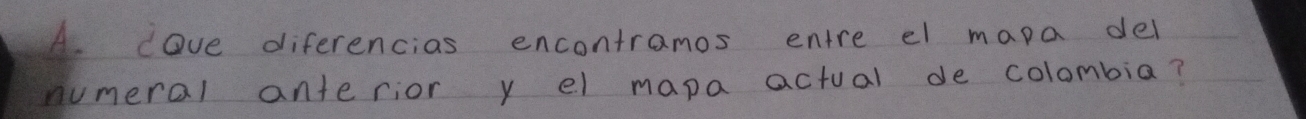 A. ¿Que diferencias encontramos entre el mapa del
numeral anterior y el mapa actual de colombia?